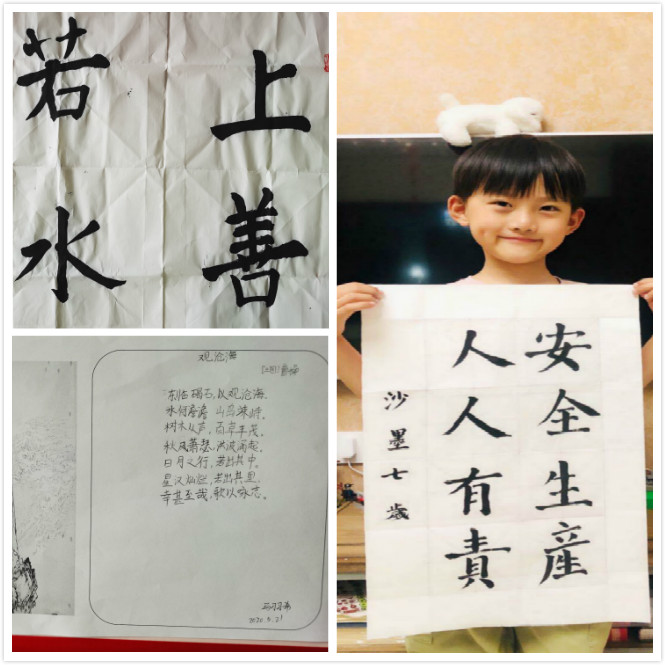 上善
若水
观沧海
曹操
东临碣石,以观沧海。
水何澹澹,山岛竦峙。
树木从,百草丰茂。
秋风萧瑟,洪波涌起。
日月之行,若出其中。
星汉灿烂,若出其里。
幸甚至哉,歌以咏志。
2020.3.21
安全生産
人人有責
沙墨七歲